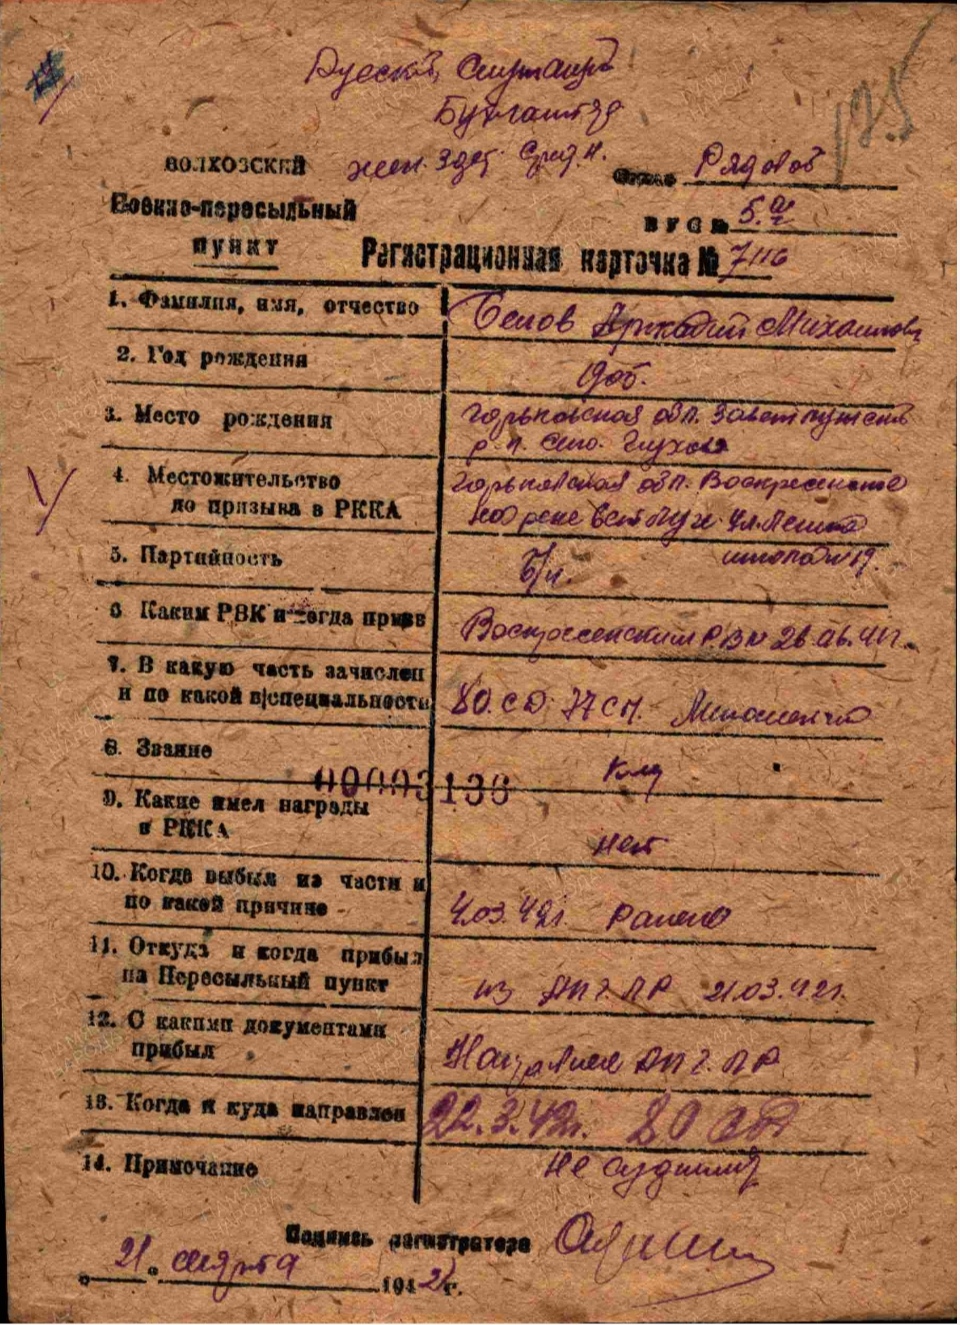 Русский, Служащий
Бухгалтер
жен. 3 дет. Сред. н.
125
ВОЛХОВСКИЙ
Военно-пересыльный
пункт
Рядовой
ВУС № 5.
Регистрационная карточка № 7116
1. Фамилия, имя, отчество Белов Аркадий Михайлович
2. Год рождения 1906.
3. Место рождения Горьковская обл.
р-н. село. Глухово
4. Местожительство Горьковская обл. Воскресенское
до призыва в РККА ул. Ленина
5. Партийность Б/п. 19.
6. Каким РВК и когда призв Воскресенским РВК 26.06.41г.
7. В какую часть зачислен
и по какой в/специальности 80. СД. 77 СП.
8. Звание Кр-ц
00003136
9. Какие имел награды
в РККА нет
10. Когда выбыл из части и
по какой причине 4.03.42г. Ранен
11. Откуда и когда прибыл
на Пересыльный пункт из ЛР 21.03.42г.
12. С какими документами
прибыл ЛР
13. Когда и куда направлен 22.3.42г. 80 СД
14. Примечание Не судимый
Подпись регистратора
21. марта 1942 г.